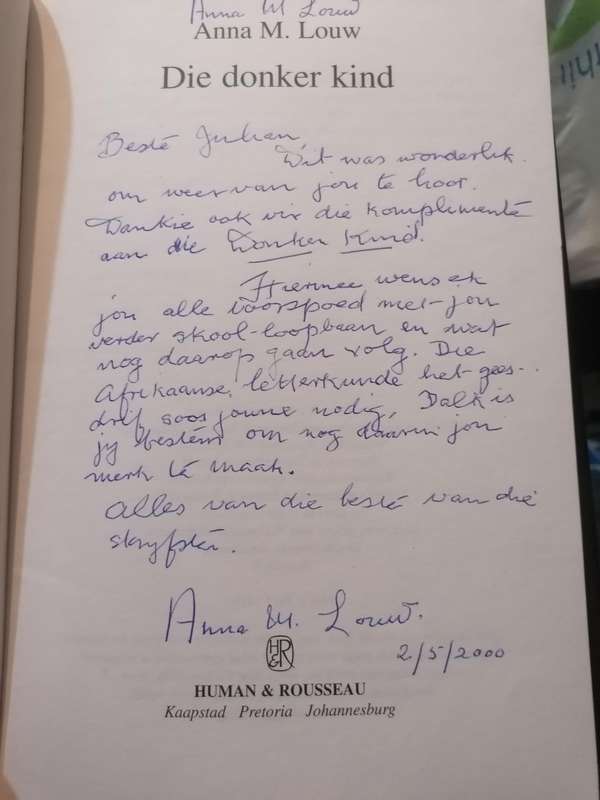 Anna M Louw
Anna M. Louw
Die donker kind
Beste Julian,
Dit was wonderlik
om weer van jou te hoor.
Dankie ook vir die komplimente
aan die Donker Kind.
Hiermee wens ek
jou alle voorspoed met jou
verder skool-loopbaan en wat
nog daarop gaan volg. Die
Afrikaanse letterkunde het gees-
drif soos joune nodig, Dalk is
jy bestem om nog daarin jou
merk te maak.
Alles van die beste van die
skryfster.
Anna M. Louw.
H&R
2/5/2000
HUMAN & ROUSSEAU
Kaapstad Pretoria Johannesburg